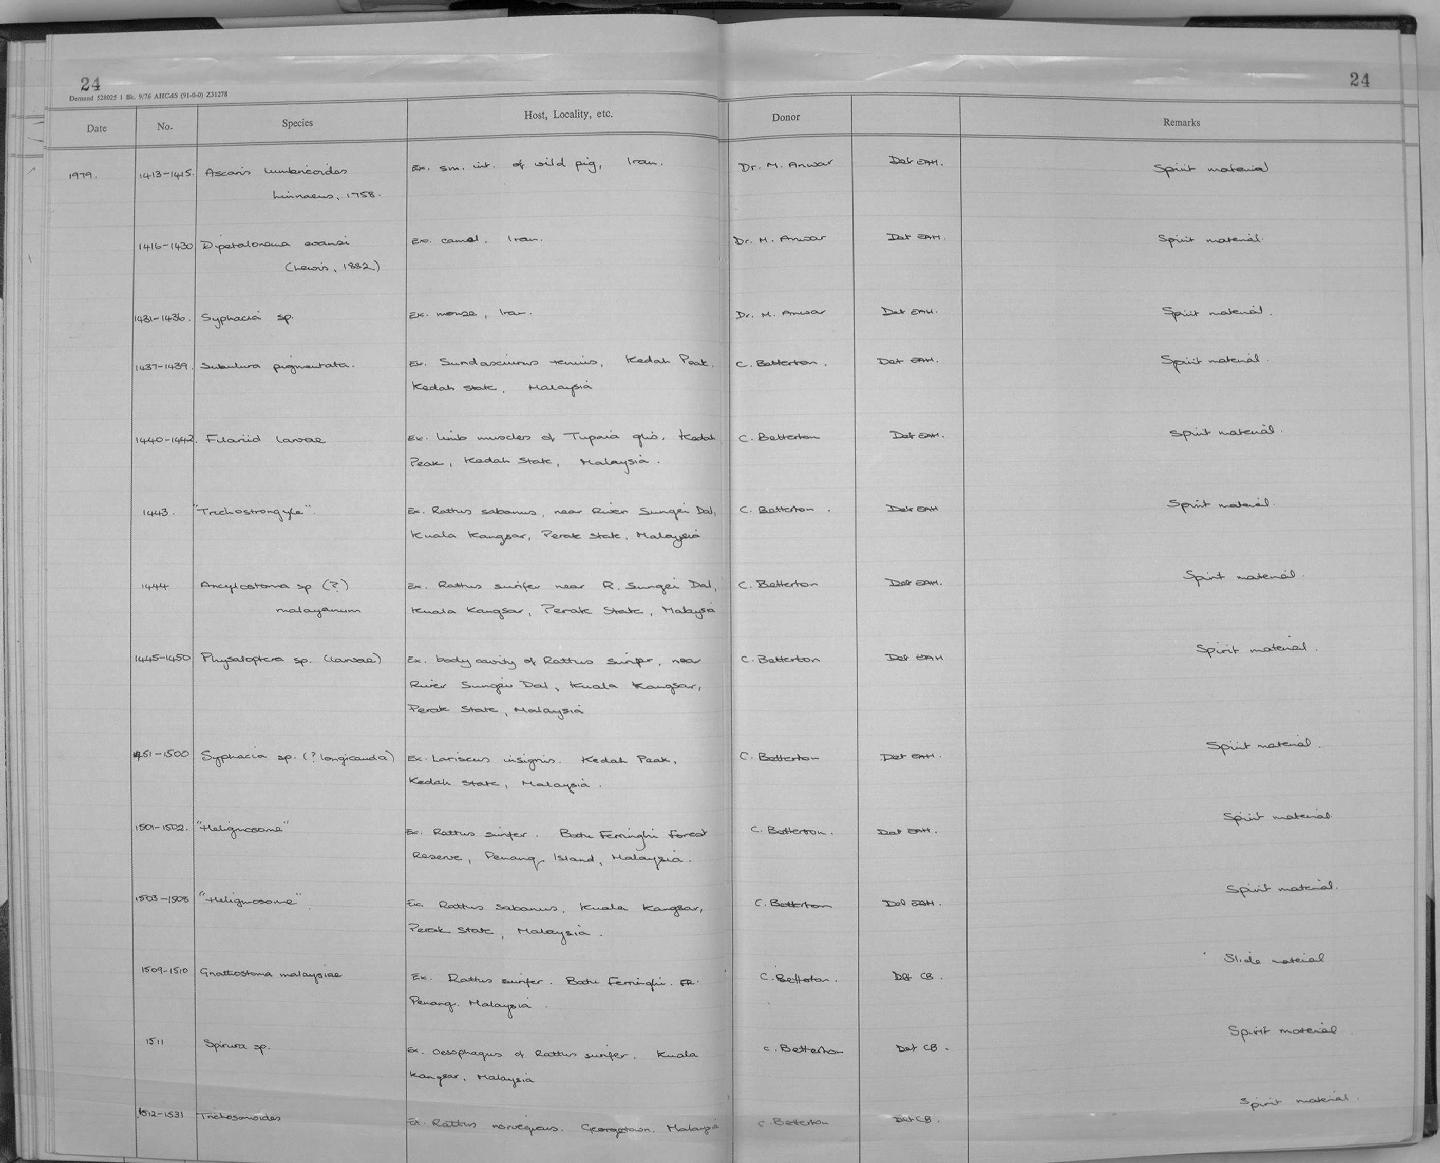 24
24
Demand 528025 1 Bk. 9/76 AHCAS (91-0-0) Z31278
Date No. Species Host, Locality, etc. Donor Remarks
1979. 1413-1415. Ascaris lumbricoides Ex. sm. int. of wild pig, Iran. Dr. M. Anwar Det EAH. Spirit material
Linnaeus, 1758.
1416-1430 Dipetalonema evansi Ex. camel. Iran. Dr. M. Anwar Det EAH. Spirit material.
(Lewis, 1882)
1431-1436. Syphacia sp. Ex. mouse, Iran. Dr. M. Anwar Det EAH. Spirit material.
1437-1439. Subulura pigmentata. Ex. Sundasciurus tenuis, Kedah Peak, C. Betterton. Det EAH. Spirit material.
Kedah State, Malaysia
1440-1442. Filariid larvae Ex. limb muscles of Tupaia glis, Kedah C. Betterton Det EAH. Spirit material.
Peak, Kedah State, Malaysia.
1443. "Trichostrongyle". Ex. Rattus sabanus, near River Sungei Dal, C. Betterton. Det EAH Spirit material.
Kuala Kangsar, Perak State, Malaysia
1444 Ancylostoma sp (?) Ex. Rattus surifer near R. Sungei Dal, C. Betterton Det EAH. Spirit material.
malayanum Kuala Kangsar, Perak State, Malaysia
1445-1450 Physaloptera sp. (larvae) Ex. body cavity of Rattus surifer, near C. Betterton Det EAH Spirit material.
River Sungei Dal, Kuala Kangsar,
Perak State, Malaysia
1451-1500 Syphacia sp. (? longicauda) Ex. Lariscus insignis. Kedah Peak, C. Betterton Det EAH. Spirit material.
Kedah State, Malaysia.
1501-1502. "Heligmosome" Ex. Rattus surifer. Batu Ferringhi Forest C. Betterton. Det EAH. Spirit material.
Reserve, Penang Island, Malaysia.
1503-1508 "Heligmosome". Ex. Rattus sabanus, Kuala Kangsar, C. Betterton Det EAH. Spirit material.
Perak State, Malaysia.
1509-1510 Gnathostoma malaysiae Ex. Rattus surifer. Batu Ferringhi. FR. C. Betterton. Det CB. Slide material
Penang. Malaysia.
1511 Spirura sp. Ex. Oesophagus of Rattus surifer. Kuala C. Betterton Det CB. Spirit material.
Kangsar, Malaysia
1512-1531 Trichosomoides Ex. Rattus norvegicus. Georgetown. Malaysia C. Betterton Det CB. Spirit material.